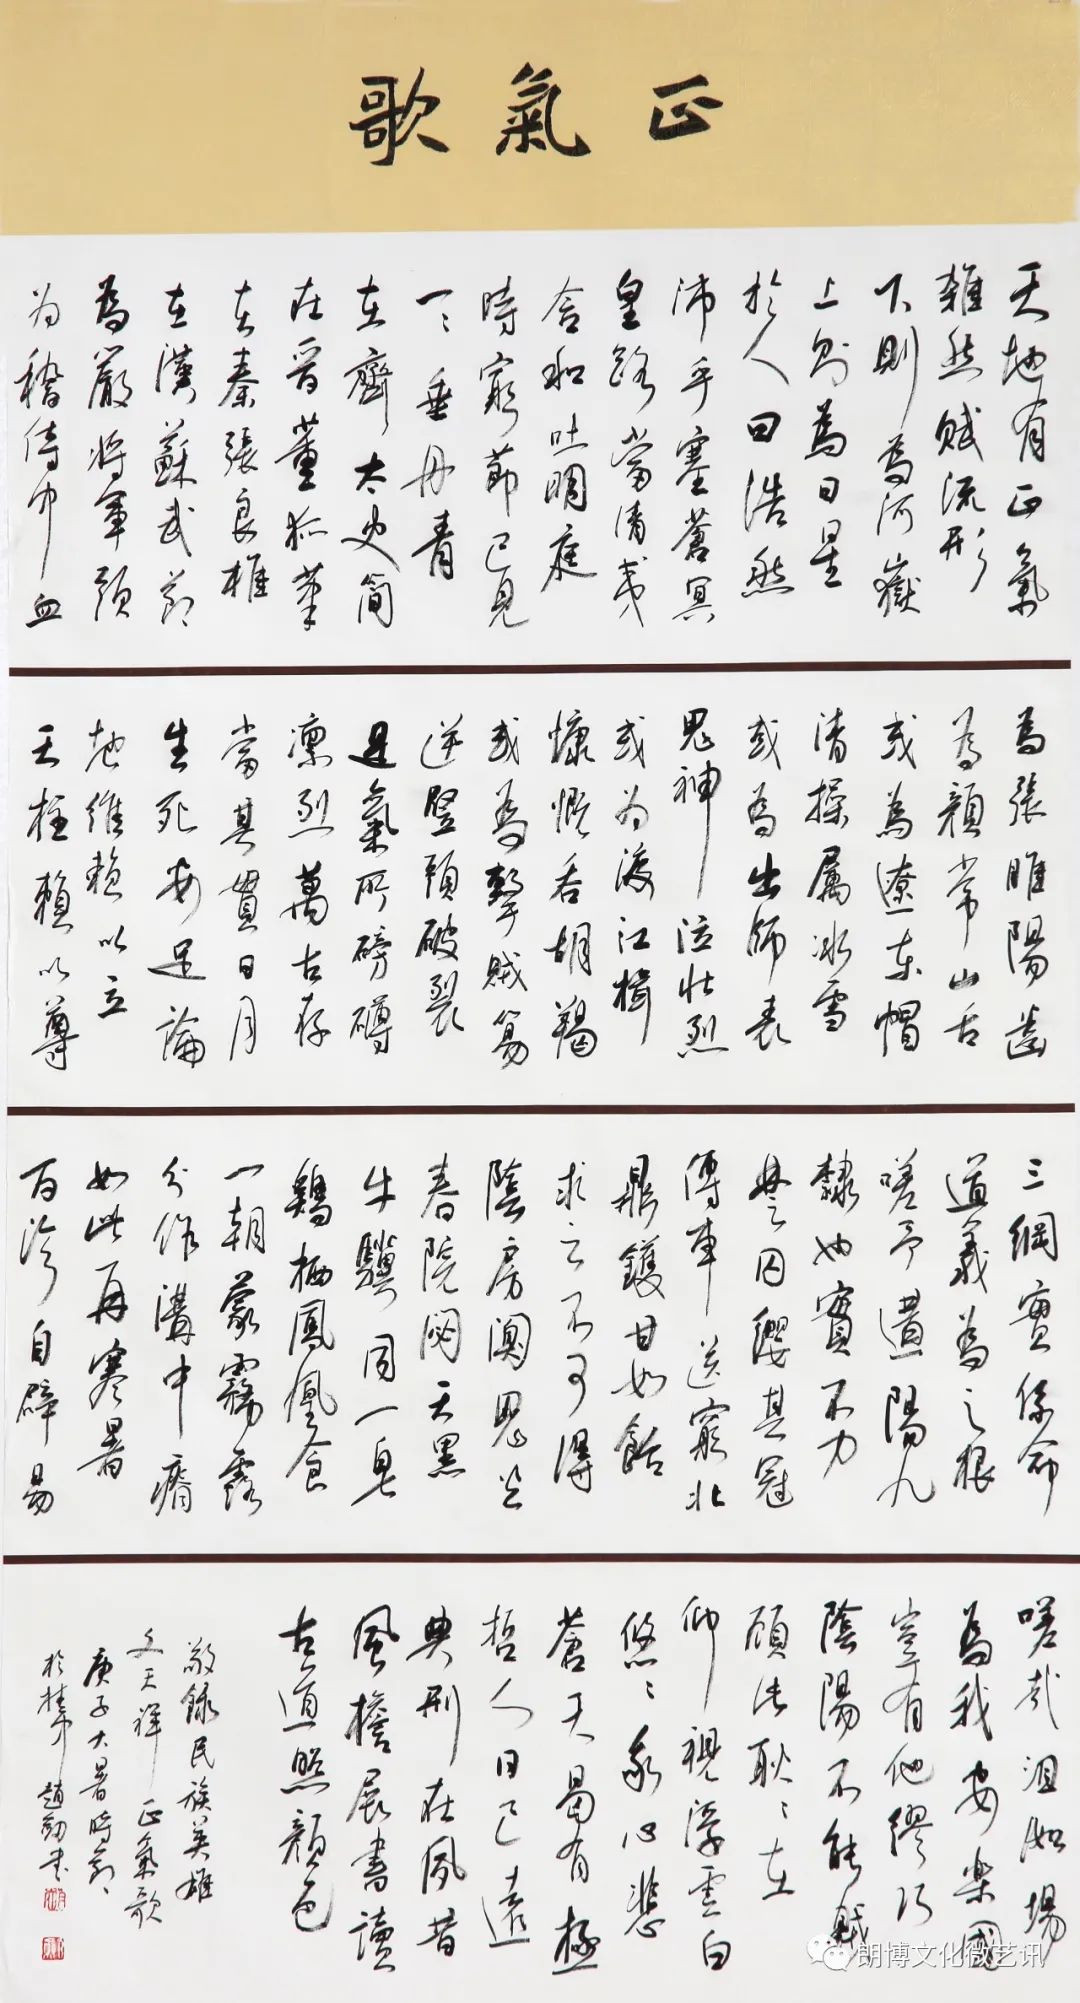 正氣歌
天地有正氣
雜然賦流形
下則為河嶽
上則為日星
於人曰浩然
沛乎塞蒼冥
皇路當清夷
含和吐明庭
時窮節已見
一〻垂丹青
在齊太史簡
在晉董狐筆
在秦張良椎
在漢蘇武節
為嚴將軍頭
為嵇侍中血
為張睢陽齒
為顏常山舌
或為遼東帽
清操厲冰雪
或為出師表
鬼神泣壯烈
或為渡江楫
慷慨吞胡羯
或為擊賊笏
逆豎頭破裂
是氣所磅礴
凛烈萬古存
當其貫日月
生死安足論
地維賴以立
天柱賴以尊
三綱實係命
道義為之根
嗟予遘陽九
隸也實不力
楚囚纓其冠
傳車送窮北
鼎鑊甘如飴
求之不可得
陰房闃鬼火
春院閟天黑
牛驥同一皂
鷄栖鳳凰食
一朝蒙霧露
分作溝中瘠
如此再寒暑
百沴自辟易
嗟哉沮洳場
為我安樂國
豈有他繆巧
陰陽不能賊
顧此耿〻在
仰視浮雲白
悠〻我心悲
蒼天曷有極
哲人日已遠
典刑在夙昔
風檐展書讀
古道照顏色
敬錄民族英雄
文天祥正氣歌
庚子大暑時節
於桂中 趙劍書
朗博文化微艺讯